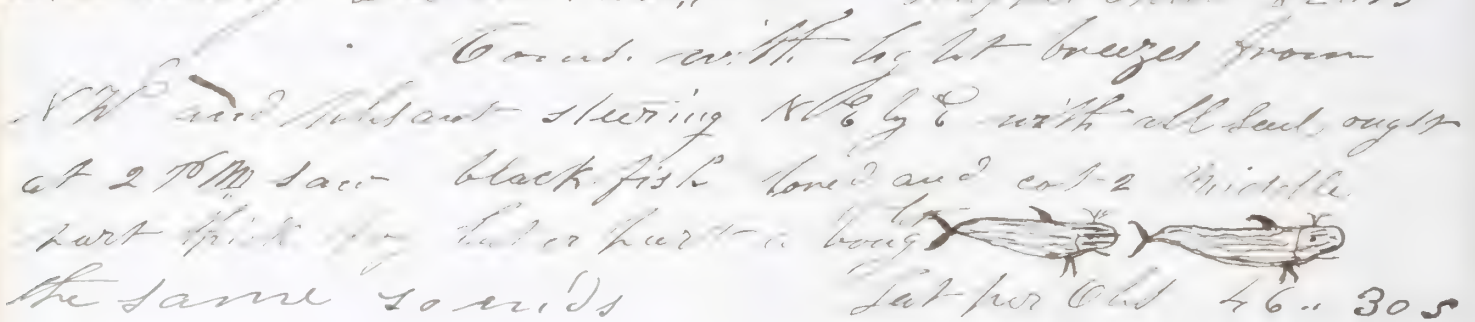 Coms. with light breezes from
NW and plesant steering NE by E with all sail ought
at 2 PM saw black fish lored and cot 2 Middle
part thick fog later part a boug
the same so ends Lat per Obs 46.. 30 s